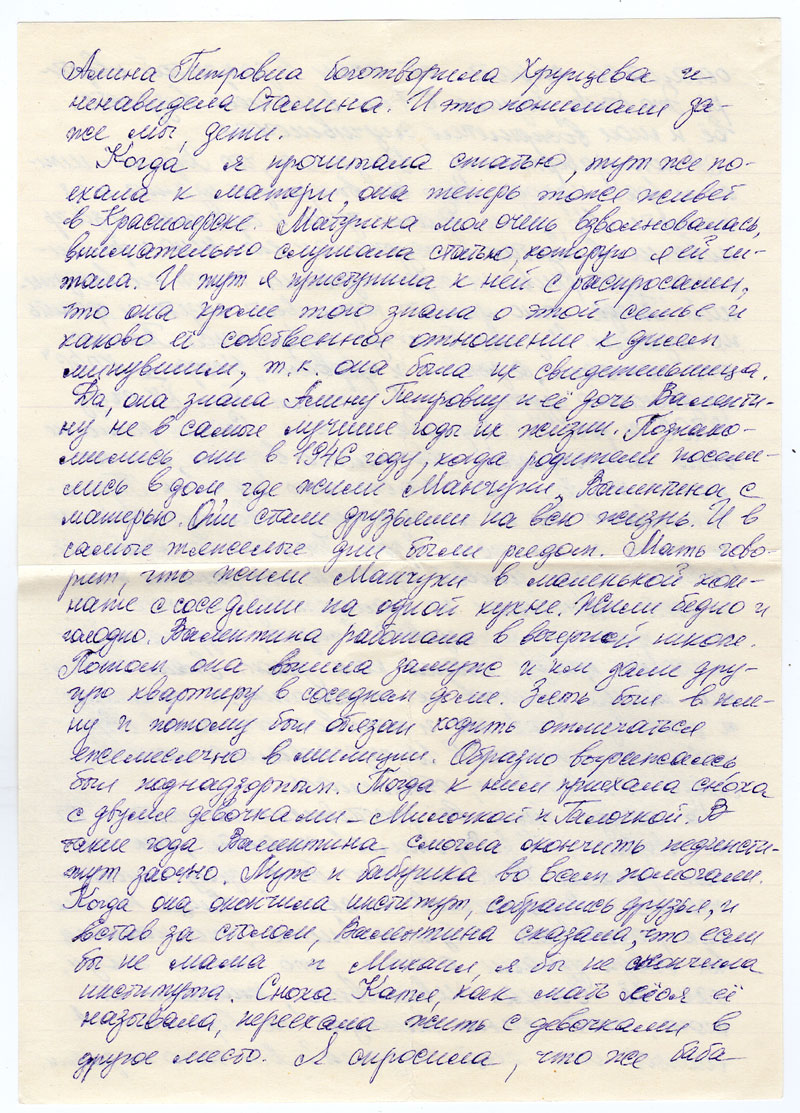 Алина Петровна боготворила Хрущева и
ненавидела Сталина. И это понимали да-
же мы, дети.
Когда я прочитала статью, тут же по-
ехала к матери, она теперь тоже живет
в Красноярске. Матушка моя очень взволновалась,
внимательно слушала статью, которую я ей чи-
тала. И тут я приступила к ней с распросами,
что она кроме того знала о этой семье и
каково её собственное отношение к дням
минувшим, т.к. она была их свидетельница.
Да, она знала Алину Петровну и её дочь Валенти-
ну не в самые лучшие годы их жизни. Познако-
мились они в 1946 году, когда родители посели-
лись в дом где жили Манчуки, Валентина с
матерью. Они стали друзьями на всю жизнь. И в
самые тяжелые дни были рядом. Мать гово-
рит, что жили Манчуки в маленькой ком-
нате с соседями на одной кухне. Жили бедно и
голодно. Валентина работала в вечерной школе.
Потом она вышла замуж и им дали дру-
гую квартиру в соседнем доме. Зять был в пле-
ну и потому был обязан ходить отмечаться
ежемесячно в милиции. Образно выражаясь
был поднадзорным. Тогда к ним приехала сноха
с двумя девочками – Милочкой и Галочкой. В
те года Валентина смогла окончить пединсти-
тут заочно. Муж и бабушка во всем помогали.
Когда она окончила институт, собрались друзья, и
встав за столом, Валентина сказала, что если
бы не мама и Михаил, я бы не окончила
института. Сноха Катя, как мать моя её
называла, переехала жить с девочками в
другое место. Я спросила, что же баба